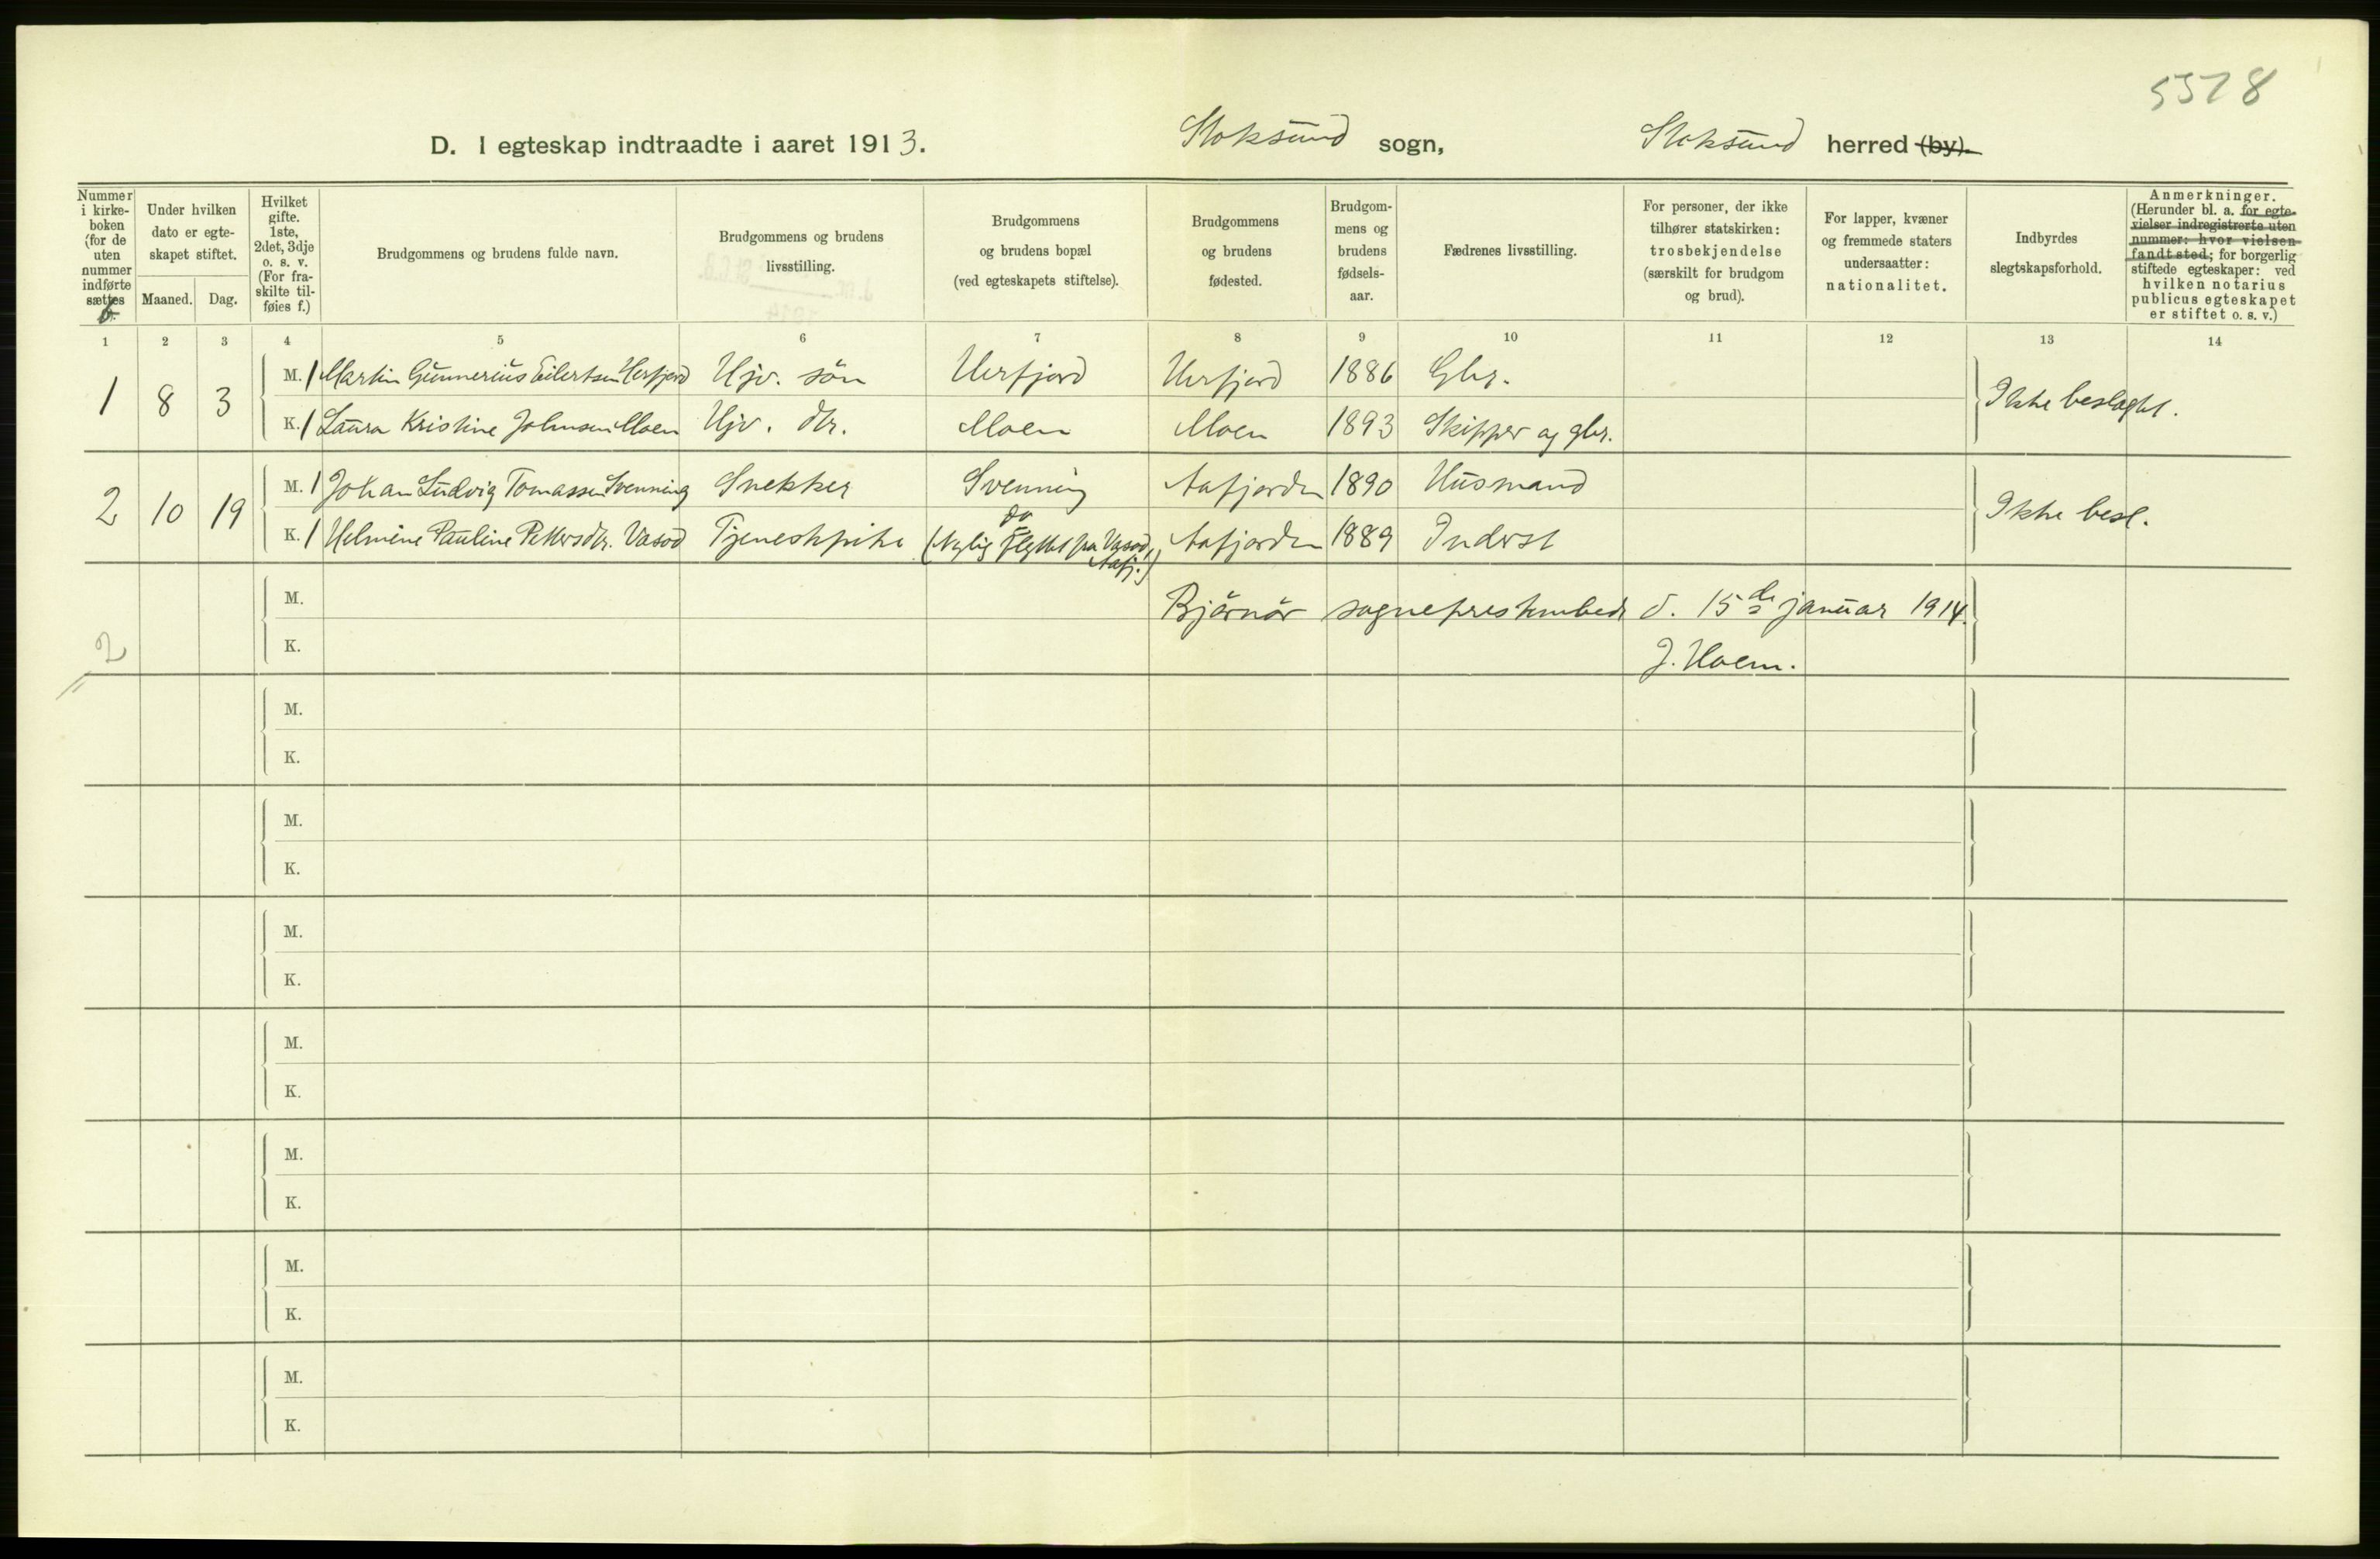 5378
D. I egteskap indtraadte i aaret 1913. Stoksund sogn, Stoksund herred (by).
Nummer i kirkeboken (for de uten nummer indførte sættes b.
Under hvilken dato er egteskapet stiftet.
Maaned. Dag.
Hvilket gifte. 1ste, 2det, 3dje o. s. v. (For fraskilte tilføies f.)
Brudgommens og brudens fulde navn.
Brudgommens og brudens livsstilling.
Brudgommens og brudens bopæl (ved egteskapets stiftelse).
Brudgommens og brudens fødested.
Brudgommens og brudens fødselsaar.
Fædrenes livsstilling.
For personer, der ikke tilhører statskirken: trosbekjendelse (særskilt for brudgom og brud).
For lapper, kvæner og fremmede staters undersaatter: nationalitet.
Indbyrdes slegtskapsforhold.
Anmerkninger. (Herunder bl. a. for egtevielser indregistrerte uten nummer: hvor vielsen fandt sted; for borgerlig stiftede egteskaper: ved hvilken notarius publicus egteskapet er stiftet o. s. v.)
1 2 3 4 5 6 7 8 9 10 11 12 13 14
1 8 3 M. 1 Martin Gunnerius Eilertsen Herfjord Hjv. søn Herfjord Herfjord 1886 Gbr. Ikke beslægtet.
K. 1 Laura Kristine Johnsen Moen Hjv. dtr. Moen Moen 1893 Skipper og gbr.
2 10 19 M. 1 Johan Ludvig Tomassen Svenning Snekker Svenning Aafjorden 1890 Husmand Ikke besl.
K. 1 Helmine Pauline Pettersdtr. Vasød Tjenestpike do (Nylig flyttet fra Vasød, Aafj.) Aafjorden 1889 Inderst
M. Bjørnør sogneprestembede d. 15de januar 1914.
2 K. J. Hoem.
M.
K.
M.
K.
M.
K.
M.
K.
M.
K.
M.
K.
M.
K.